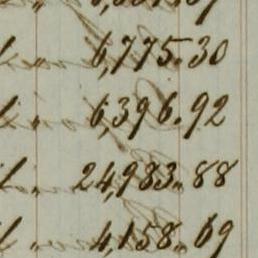 6,775.30
6,396.92
24,983.88
4,158.69